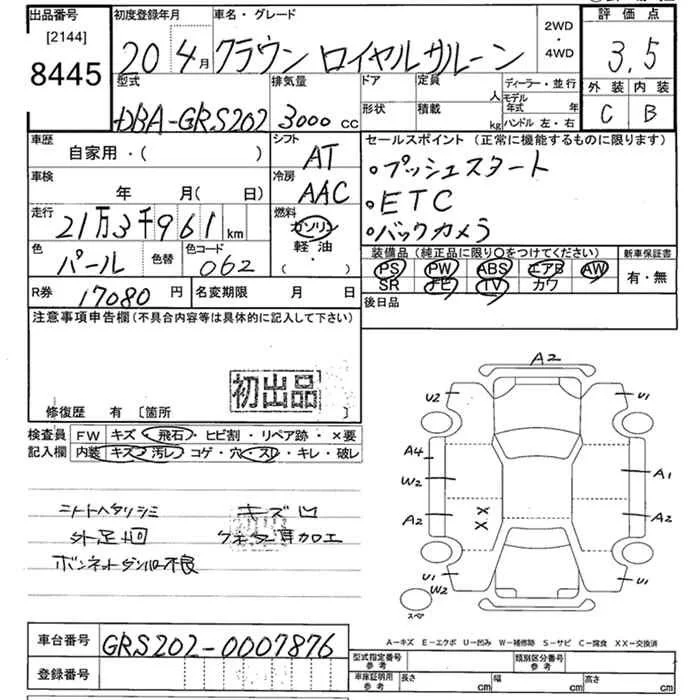 出品番号
[2144]
8445
初度登録年月
20 4月
車名・グレード
クラウン ロイヤルサルーン
2WD
・
4WD
評価点
3.5
外装 内装
C B
型式
DBA-GRS202
排気量
3000cc
ドア
形状
定員
人
積載
kg
ディーラー・並行
モデル年式 年
ハンドル 左・右
車歴
自家用・( )
車検
年 月(日)
走行
21万3千961km
色
パール
色替
色コード
062
シフト
AT
冷房
AAC
燃料
ガソリン
軽油・
( ・ )
セールスポイント (正常に機能するものに限ります)
•プッシュスタート
•ETC
•バックカメラ
装備品 (純正品に限り○をつけてください)
PS PW ABS エアB AW
SR TV カワ
新車保証書
有・無
R券 17080円
名変期限 月 日
後日品
注意事項申告欄 (不具合内容等は具体的に記入して下さい)
初出品
修復歴 有 [箇所 ]
検査員記入欄
FW キズ・飛石・ヒビ割・リペア跡・×要
内装 キズ・汚レ・コゲ・穴・スレ・キレ・破レ
シートヘタリシミ キズ凹
外足回
ボンネットダンパー不良
A2
U2 U1
A4
W2
A1
A2
XX
A2
U1
W2
U1
スペア
A-キズ E-エクボ U-凹み W-補修跡 S-サビ C-腐食 XX-交換済
車台番号 GRS202-0007876
登録番号
型式指定番号
参考
類別区分番号
参考
車庫証明用
参考
長さ cm 幅 cm 高さ cm